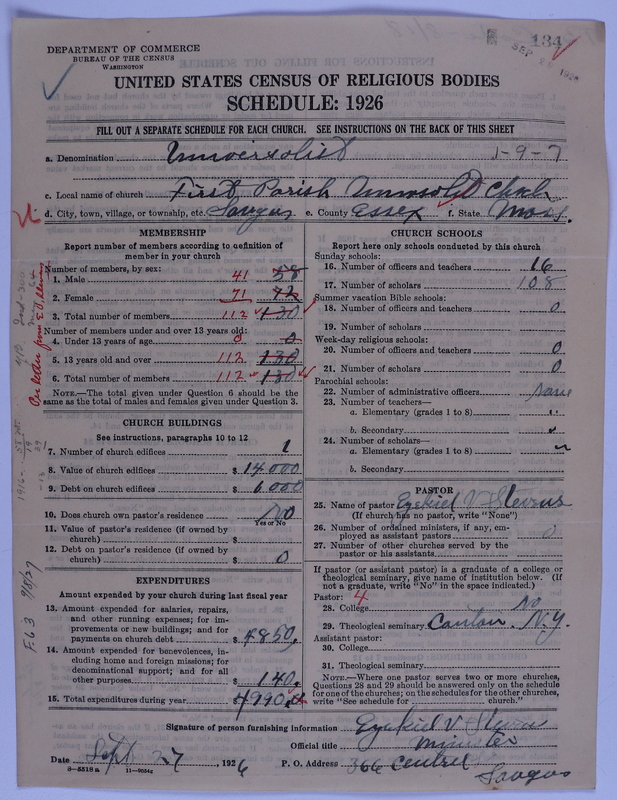 DEPARTMENT OF COMMERCE
BUREAU OF THE CENSUS
WASHINGTON
134
SEP
UNITED STATES CENSUS OF RELIGIOUS BODIES
SCHEDULE: 1926
FILL OUT A SEPARATE SCHEDULE FOR EACH CHURCH. SEE INSTRUCTIONS ON THE BACK OF THIS SHEET
a. Denomination Universalist 1-9-7
c. Local name of church First Parish
d. City, town, village, or township, etc. Saugus e. County Essex f. State Mass.
MEMBERSHIP
Report number of members according to definition of
member in your church
Number of members, by sex:
1. Male 41 58
2. Female 71 72
3. Total number of members 112 130
Number of members under and over 13 years old:
4. Under 13 years of age 0 0
5. 13 years old and over 112 130
6. Total number of members 112 130
NOTE.—The total given under Question 6 should be the
same as the total of males and females given under Question 3.
CHURCH BUILDINGS
See instructions, paragraphs 10 to 12
7. Number of church edifices 1
8. Value of church edifices $ 14000
9. Debt on church edifices $ 6000
10. Does church own pastor's residence No
Yes or No
11. Value of pastor's residence (if owned by
church) $
12. Debt on pastor's residence (if owned by
church) $ 0
EXPENDITURES
Amount expended by your church during last fiscal year
13. Amount expended for salaries, repairs,
and other running expenses; for im-
provements or new buildings; and for
payments on church debt $ 4850.
14. Amount expended for benevolences, in-
cluding home and foreign missions; for
denominational support; and for all
other purposes $ 140.
15. Total expenditures during year $ 4990.
CHURCH SCHOOLS
Report here only schools conducted by this church
Sunday schools:
16. Number of officers and teachers 16
17. Number of scholars 108
Summer vacation Bible schools:
18. Number of officers and teachers 0
19. Number of scholars
Week-day religious schools:
20. Number of officers and teachers 0
21. Number of scholars 0
Parochial schools:
22. Number of administrative officers None
23. Number of teachers—
a. Elementary (grades 1 to 8)
b. Secondary
24. Number of scholars—
a. Elementary (grades 1 to 8)
b. Secondary
PASTOR
25. Name of pastor Ezekiel V Stevens
(If church has no pastor, write "None")
26. Number of ordained ministers, if any, em-
ployed as assistant pastors 0
27. Number of other churches served by the
pastor or his assistants
If pastor (or assistant pastor) is a graduate of a college or
theological seminary, give name of institution below. (If
not a graduate, write "No" in the space indicated.)
Pastor: 4
28. College No
29. Theological seminary Canton. N.Y.
Assistant pastor:
30. College
31. Theological seminary
NOTE.—Where one pastor serves two or more churches,
Questions 28 and 29 should be answered only on the schedule
for one of the churches; on the schedules for the other churches,
write "See schedule for church."
Signature of person furnishing information Ezekiel V Stevens
Official title Minister
Date Sept 27, 1926 P. O. Address 366 Central
Saugus
8—5518a 11—9054z